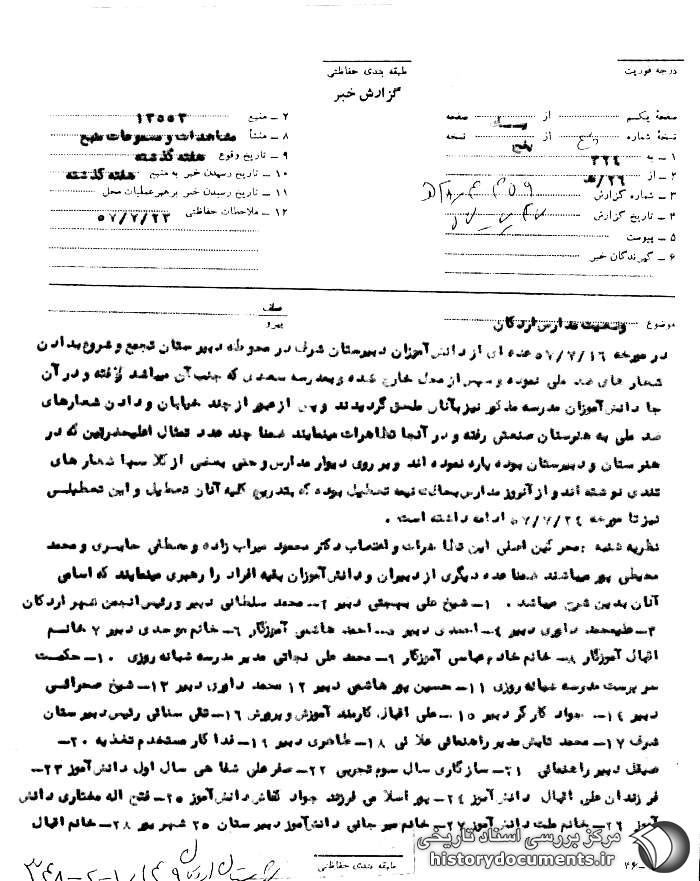 طبقه بندی حفاظتی
گزارش خبر
درجه فوریت
صفحه یکم از صفحه
نسخه شماره از پنج نسخه
۱ ـ به ۳۲٤
۲ ـ از ۲٦/هـ
۳ ـ شماره گزارش
۴ ـ تاریخ گزارش
۵ ـ پیوست
۶ ـ گیرندگان خبر
۷ ـ منبع ۱۳۵۵۳
۸ ـ منشأ مشاهدات و مسموعات منبع
۹ ـ تاریخ وقوع هفته گذشته
۱۰ ـ تاریخ رسیدن خبر به منبع هفته گذشته
۱۱ ـ تاریخ رسیدن خبر به رهبر عملیات محل
۱۲ ـ ملاحظات حفاظتی ۵۷/۷/۲۳
موضوع وضعیت مدارس اردکان
عطف
پیرو
در مورخه ۵۷/۷/۱۶ عده ای از دانش آموزان دبیرستان شرف در محوطه دبیرستان تجمع و شروع بدادن
شعار های ضد ملی نموده و سپس از محل خارج شده و بمدرسه سعدی که جنب آن میباشد رفته و در آن
جا دانش آموزان مدرسه مذکور نیز بآنان ملحق گردیدند و پس از عبور از چند خیابان و دادن شعارهای
ضد ملی به هنرستان صنعتی رفته و در آنجا تظاهرات مینمایند ضمنا چند عدد تمثال اعلیحضرتین که در
هنرستان و دبیرستان بوده پاره نموده اند و بر روی دیوار مدارس و حتی بعضی از کلاسها شعار های
تندی نوشته اند و از آنروز مدارس بحالت نیمه تعطیل بوده که بتدریج کلیه آنان تعطیل و این تعطیلی
نیز تا مورخه ۵۷/۷/۲٤ ادامه داشته است .
نظریه شنبه : محرکین اصلی این تظاهرات و اعتصاب دکتر محمود میراب زاده و مصطفی حایری و محمد
محیطی پور میباشند ضمنا عده دیگری از دبیران و دانش آموزان بقیه افراد را رهبری مینمایند که اسامی
آنان بدین شرح میباشد . ۱ـ شیخ علی بهجتی دبیر ۲ـ محمد سلطانی دبیر و رئیس انجمن شهر اردکان
۳ـ علیمحمد داوری دبیر ٤ـ احمدی دبیر ۵ـ احمد هاشمی آموزگار ۶ـ خانم موحدی دبیر ۷ خانم
اقبال آموزگار ۸ـ خانم خادم عباسی آموزگار ۹ـ محمد علی نجاتی مدیر مدرسه شبانه روزی ۱۰ـ حکمت
سرپرست مدرسه شبانه روزی ۱۱ـ حسین پور هاشمی دبیر ۱۲ محمد داوری دبیر ۱۳ـ شیخ صحرائی
دبیر ۱٤ـ جواد کارگر دبیر ۱۵ـ علی اقبال کارمند آموزش و پرورش ۱۶ـ تقی سنائی رئیس دبیرستان
شرف ۱۷ـ محمد تابش مدیر راهنمائی علائی ۱۸ـ طاهری دبیر ۱۹ـ فداکار مستخدم تغذیه ۲۰ـ
صیقل دبیر راهنمائی ۲۱ـ سازگاری سال سوم تجربی ۲۲ـ صفر علی شفاهی سال اول دانش آموز ۲۳ـ
فرزندان علی اقبال دانش آموز ۲٤ـ پور اسلامی فرزند جواد کفاش دانش آموز ۲۵ـ فتح اله مختاری دانش
آموز ۲۶ـ خانم ملت دانش آموز ۲۷ـ خانم میرجانی دانش آموز دبیرستان ۲۵ شهریور ۲۸ـ خانم اقبال
طبقه بندی حفاظتی
مرکز بررسی اسناد تاریخی
historydocuments.ir